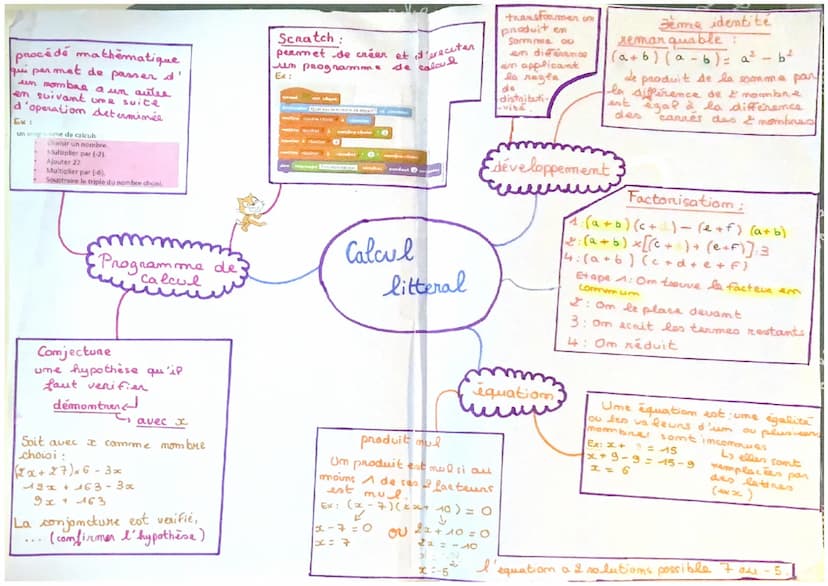 Calcul
littéral
Programme de
Calcul
procédé mathématique
qui permet de passer d'
un nombre a un autre
en suivant une suite
d'operation determinée
Ex :
un programme de calcul:
Choisir un nombre.
Multiplier par (-2).
Ajouter 22
Multiplier par (-6).
Soustraire le triple du nombre choisi.
Scratch :
permet de créer et d'executer
un programme de calcul
Ex :
Conjecture
une hypothèse qu'il
faut verifier
démontrer
avec x
Soit avec x comme nombre
choisi :
(2x+27)×6-3x
12x+163-3x
9x+163
La conjoncture est verifié,
... (confirmer l'hypothèse)
développement
transformer un
produit en
somme ou
en différence
en applicant
la regle
de
distributi-
vité.
3ème identité
remarquable :
(a+b)(a-b)= a²-b²
Le produit de la somme par
la différence de 2 nombre
est égal à la différence
des carrés des 2 nombres
Factorisation :
1:(a+b)(c+ ) - (e+f)(a+b)
2:(a+b)×[(c+ )+(e+f)]:3
4:(a+b)(c+d+e+f)
Etape 1: On trouve le facteur en
commun
2: On le place devant
3: On écrit les termes restants
4: On réduit
équation
Une équation est: une égalité
ou les valeurs d'un ou plusieurs
nombres sont inconnues
Ex: x+9=15
x+9-9=15-9
x=6
↳ elles sont
remplacées par
des lettres
(ex x)
produit nul
Un produit est nul si au
moins 1 de ses 2 facteurs
est nul.
Ex: (x-7)(2x+10)=0
x-7=0 ou 2x+10=0
x=7 2x=-10
x=-5
l'équation a 2 solutions possible 7 ou -5.